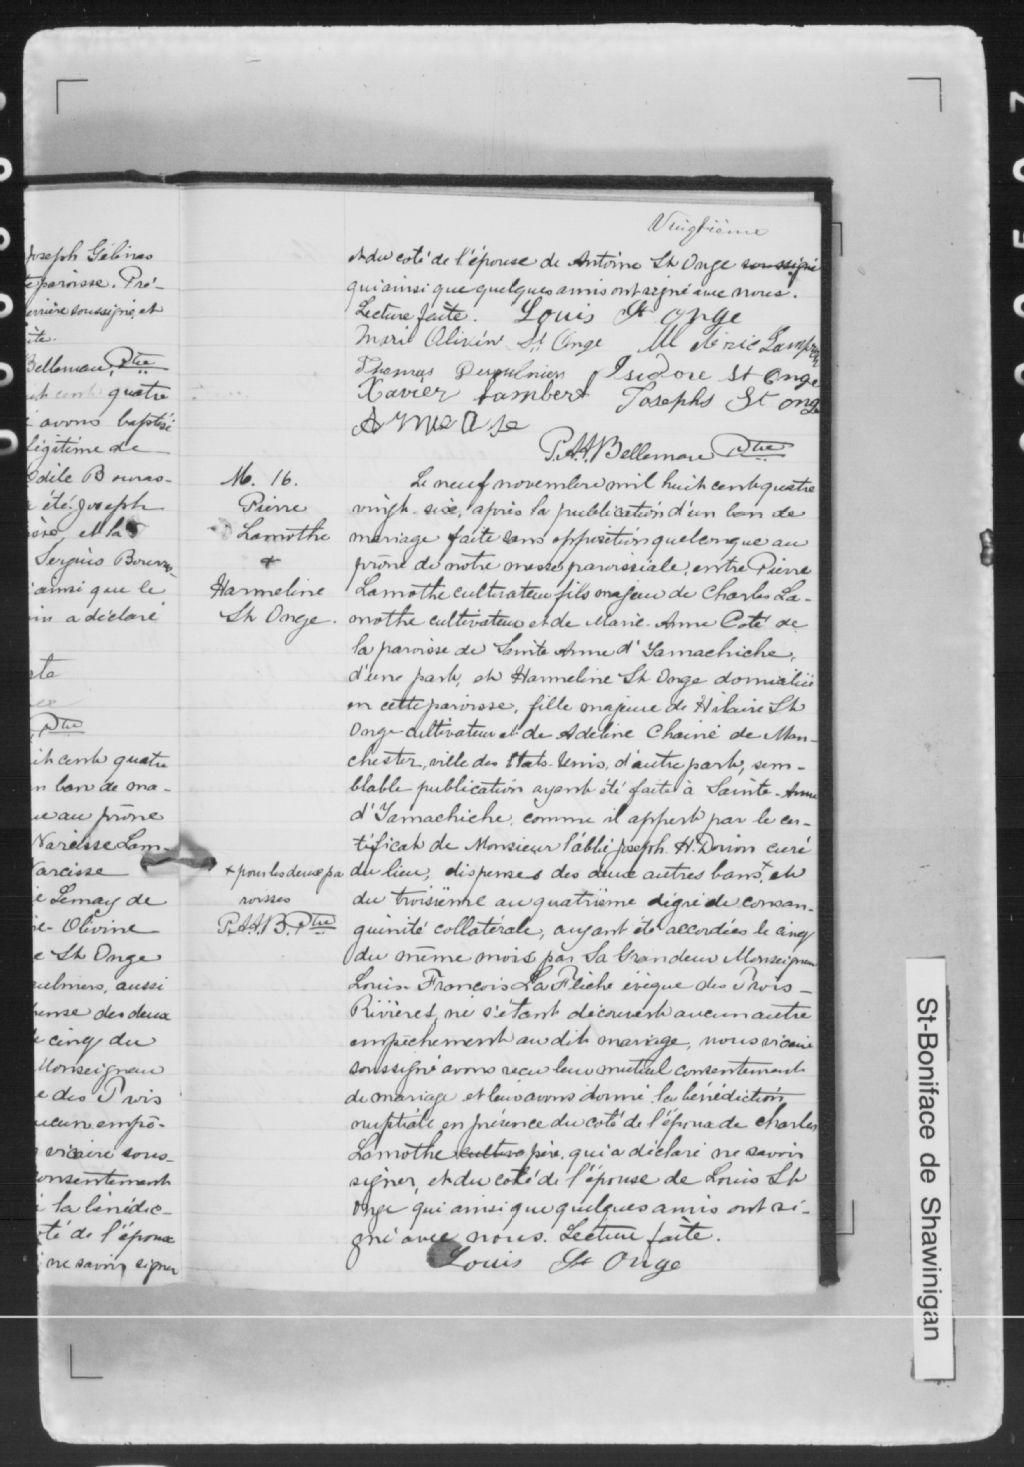 Joseph Gélinas
paroisse. Pré-
soussigné, et
Bellemare, Ptre
cent quatre
avons baptisé
légitime de
Odile Bouras-
été Joseph
et la
Sergius Bourras-
ainsi que le
a déclaré
Ptre
cent quatre
ban de ma-
au prône
Narcisse Lam-
Narcisse
Lemay de
Olivine
St Onge
aussi
des deux
cinq du
Monseigneur
des Trois
aucun empê-
vicaire sous-
consentement
la bénédic-
té de l'époux
ne savoir signer
M. 16.
Pierre
Lamothe
+
Harmeline
St Onge.
+ pour les deux pa
roisses
P.A.A.B. Ptre
Vingtième
et du coté de l'épouse de Antoine St Onge soussigné
qui ainsi que quelques amis ont signé avec nous.
Lecture faite. Louis St Onge
Marie Olivin St Onge
Thomas Desaulniers Isidore St Onge
Xavier Lambert Josephs St onge
P.A.A. Bellemare Ptre
Le neuf novembre mil huit cent quatre
vingt-six, après la publication d'un ban de
mariage faite sans opposition quelconque au
prône de notre messe paroissiale, entre Pierre
Lamothe cultivateur fils majeur de Charles La-
mothe cultivateur et de Marie-Anne Coté de
la paroisse de Sainte Anne d'Yamachiche,
d'une part, et Harmeline St Onge domiciliée
en cette paroisse, fille majeure de Hilaire St
Onge cultivateur et de Adeline Chainé de Man-
chester, ville des Etats-Unis, d'autre part, sem-
blable publication ayant été faite à Sainte-Anne
d'Yamachiche, comme il appert par le cer-
tificat de Monsieur l'abbé Joseph H. Dorion curé
du lieu, dispenses des deux autres bans+, et
du troisième au quatrième dégré de consan-
guinité collatérale, ayant été accordées le cinq
du même mois par Sa Grandeur Monseigneur
Louis-François LaFlèche évêque des Trois-
Rivières, ne s'étant découvert aucun autre
empêchement au dit mariage, nous vicaire
soussigné avons reçu leur mutuel consentement
de mariage et leur avons donné la bénédiction
nuptiale en présence du coté de l'époux de Charles
Lamothe cultiva père, qui a déclaré ne savoir
signer, et du coté de l'épouse de Louis St
Onge qui ainsi que quelques amis ont si-
gné avec nous. Lecture faite.
Louis St Onge
St-Boniface de Shawinigan